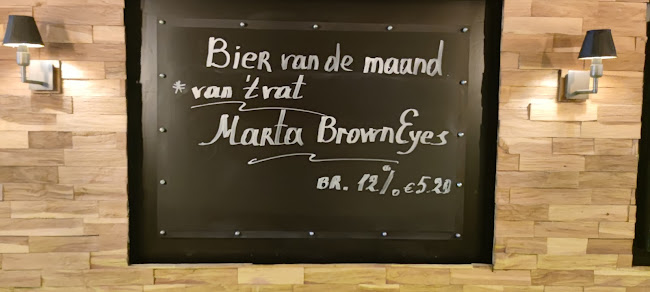 Bier van de maand
* van 't vat
Marta BrownEyes
BR. 12% €5.20